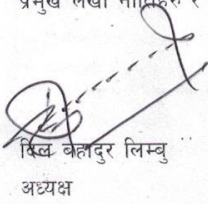 प्रमुख लेखा नीतिहरु र
दिल बहादुर लिम्बु
अध्यक्ष